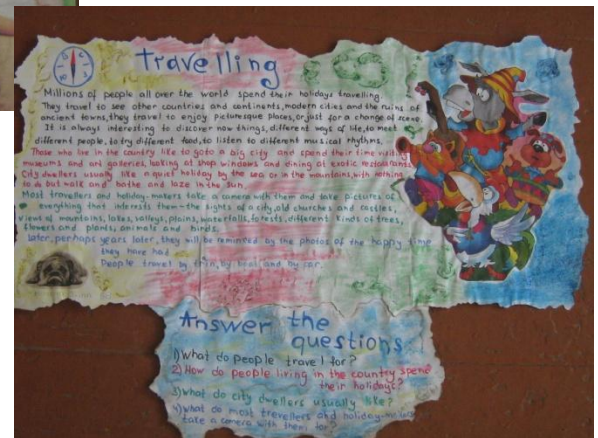 Travelling
Millions of people all over the world spend their holidays travelling.
They travel to see other countries and continents, modern cities and the ruins of
ancient towns, they travel to enjoy picturesque places, or just for a change of scene.
It is always interesting to discover new things, different ways of life, to meet
different people, to try different food, to listen to different musical rhythms.
Those who live in the country like to go to a big city and spend their time visiting
museums and art galeries, looking at shop windows and dining at exotic restaurants.
City dwellers usually like a quiet holiday by the sea or in the mountains, with nothing
to do but walk and bathe and laze in the sun.
Most travellers and holiday-makers take a camera with them and take pictures of
everything that interests them-the sights of a city, old churches and castles,
views of mountains, lakes, valleys, plains, waterfalls, forests, different kinds of trees,
flowers and plants, animals and birds.
Later, perhaps years later, they will be reminded by the photos of the happy time
they have had.
People travel by train, by boat and by car.
Answer the
questions
1) What do people travel for?
2) How do people living in the country spend
their holidays?
3) What do city dwellers usually like?
4) What do most travellers and holiday-makers
take a camera with them for?